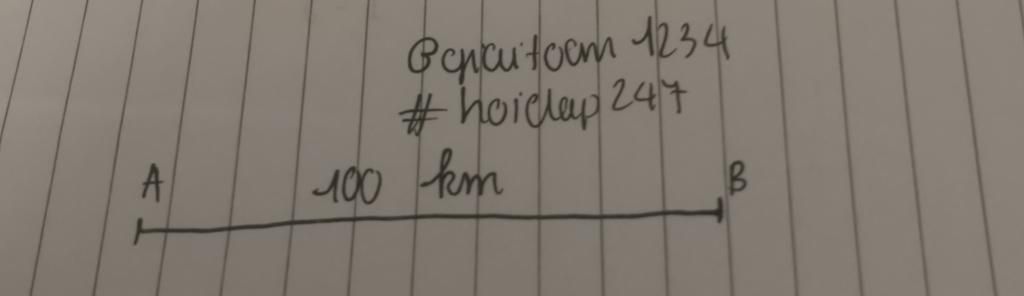 @cncutoam 1234
# hoidap 247
A 100 km B